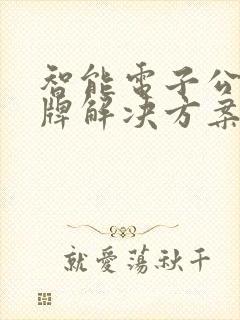 智能電子公
牌解决方案
就愛蕩秋千